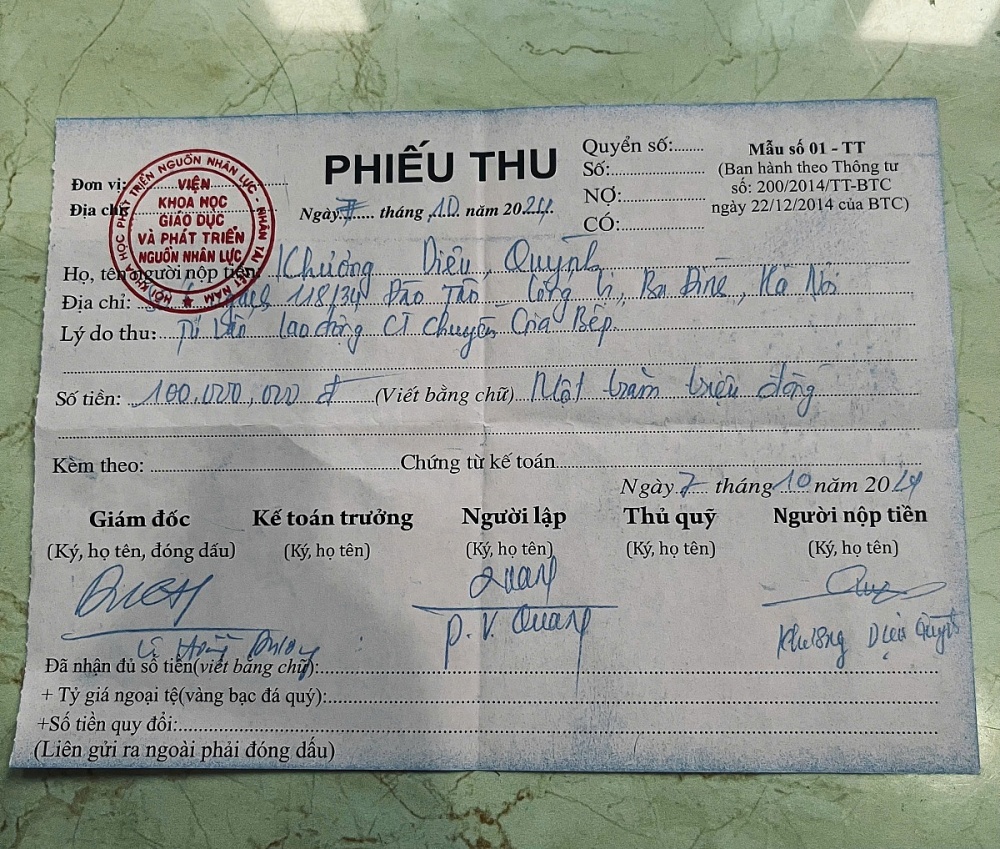 PHIẾU THU
Quyển số:........
Số:
NỢ:
CÓ:
Mẫu số 01 - TT
(Ban hành theo Thông tư
số: 200/2014/TT-BTC
ngày 22/12/2014 của BTC)
Đơn vị:
Địa chỉ:
HỘI KHOA HỌC PHÁT TRIỂN NGUỒN NHÂN LỰC - NHÂN TÀI VIỆT NAM
VIỆN
KHOA HỌC
GIÁO DỤC
VÀ PHÁT TRIỂN
NGUỒN NHÂN LỰC
Ngày 7 tháng 10 năm 2024
Họ, tên người nộp tiền: Khương Diệu Quỳnh
Địa chỉ: 118/34 Đào Tấn - Cống Vị, Ba Đình, Hà Nội
Lý do thu: lao động CT chuyên Của Bếp.
Số tiền: 100.000.000 đ (Viết bằng chữ) Một trăm triệu đồng
Kèm theo: Chứng từ kế toán
Ngày 7 tháng 10 năm 2024
Giám đốc Kế toán trưởng Người lập Thủ quỹ Người nộp tiền
(Ký, họ tên, đóng dấu) (Ký, họ tên) (Ký, họ tên) (Ký, họ tên) (Ký, họ tên)
Quang
P. V. Quang
Khương Diệu Quỳnh
Đã nhận đủ số tiền(viết bằng chữ):
+ Tỷ giá ngoại tệ(vàng bạc đá quý):
+Số tiền quy đổi:
(Liên gửi ra ngoài phải đóng dấu)